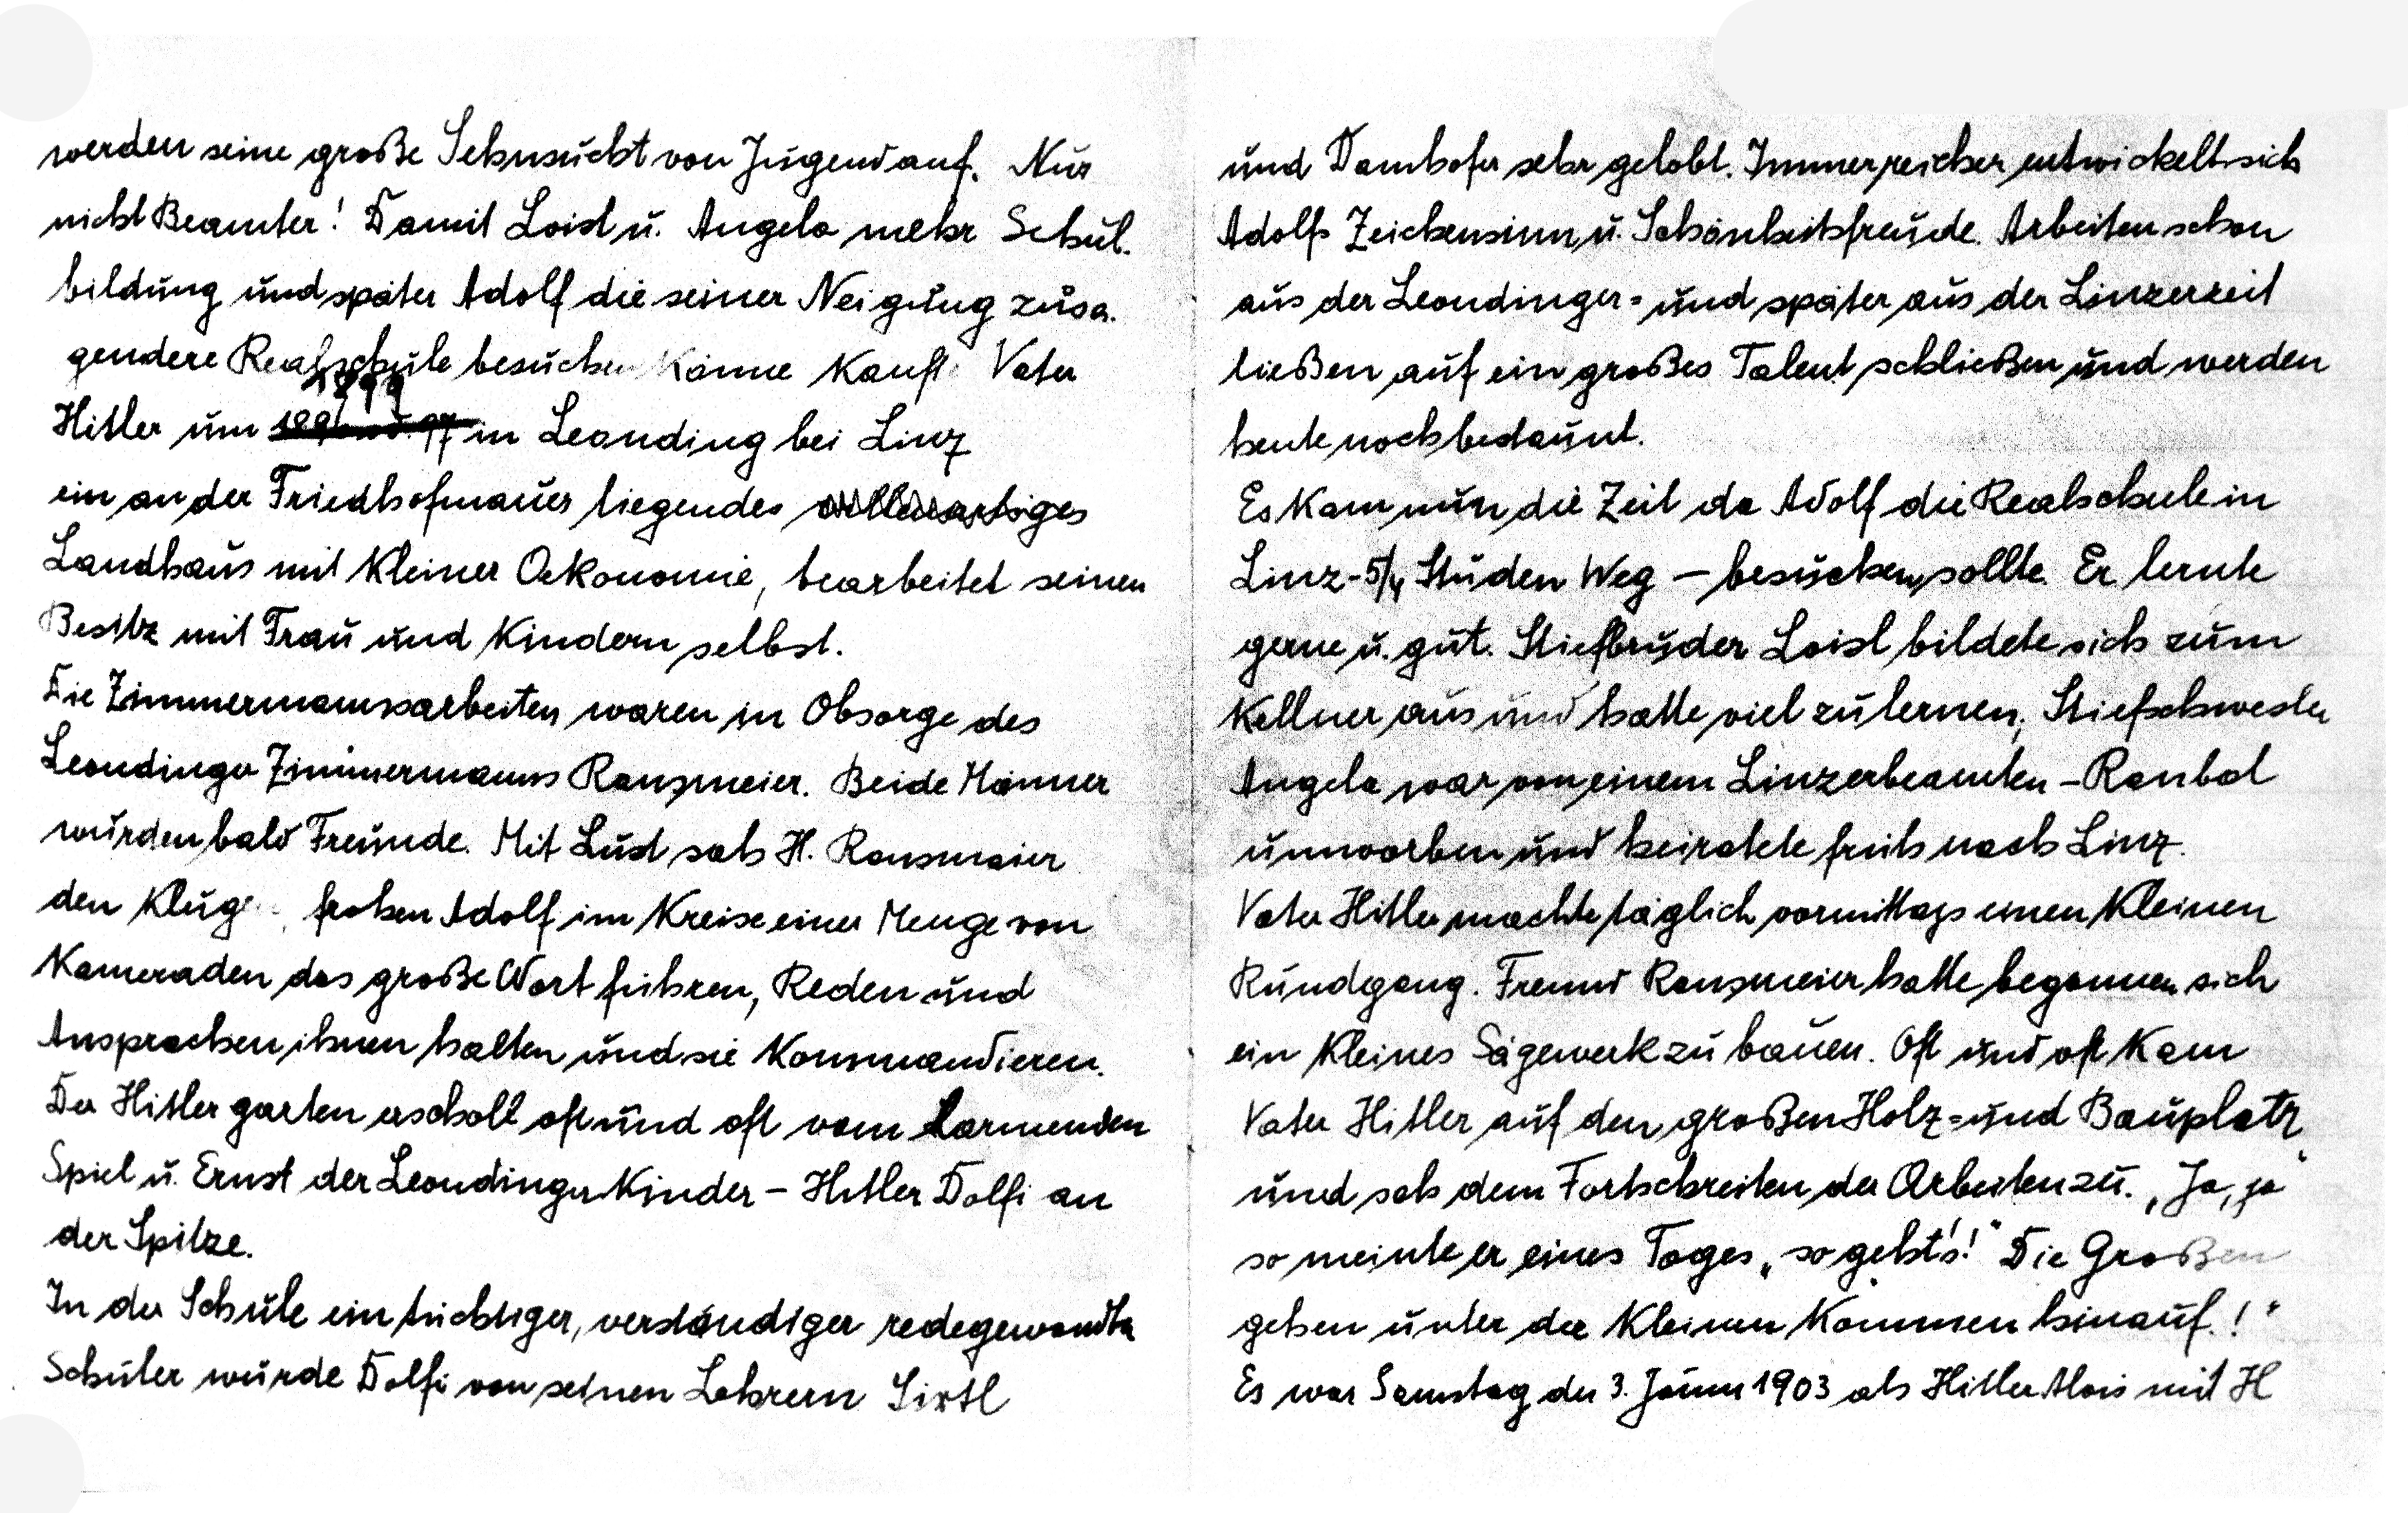 werden seine große Sehnsucht von Jugend auf. Nur
nicht Beamter! Damit Loisl u. Angela mehr Schul-
bildung und später Adolf die seiner Neigung zusa-
gendere Realschule besuchen könne kauft Vater
1899
Hitler um in Leonding bei Linz
ein an der Friedhofmauer liegendes villenartiges
Landhaus mit kleiner Oekonomie, bearbeitet seinen
Besitz mit Frau und Kindern selbst.
Die Zimmermannsarbeiten waren in Obsorge des
Leondinger Zimmermanns Ransmeier. Beide Männer
wurden bald Freunde. Mit Lust sah H. Ransmaier
den kluge , frohen Adolf im Kreise einer Menge von
Kameraden das große Wort führen, Reden und
Ansprachen ihnen halten und sie kommandieren.
Der Hitler garten erscholl oft und oft vom Lärmenden
Spiel u. Ernst der Leondinger Kinder – Hitler Dolfi an
der Spitze.
In der Schule ein tüchtiger, verständiger redegewandter
Schüler wurde Dolfi von seinen Lehrern Sixtl
und Damhofer sehr gelobt. Immer reicher entwickelt sich
Adolfs Zeichensinn u. Schönheitsfreude. Arbeiten schon
aus der Leondinger= und später aus der Linzerzeit
ließen auf ein großes Talent schließen und werden
heute noch bestaunt.
Es kam nun die Zeit da Adolf die Realschule in
Linz - 5/4 Studen Weg – besuchen sollte. Er lernte
gerne u. gut. Stiefbruder Loisl bildete sich zum
Kellner aus und hatte viel zu lernen, Stiefschwester
Angela war von einem Linzerbeamten – Raubal
umworben und heiratete früh nach Linz.
Vater Hitler machte täglich vormittags einen kleinen
Rundgang. Freund Ransmeier hatte begonnen sich
ein kleines Sägewerk zu bauen. Oft und oft kam
Vater Hitler auf den großen Holz= und Bauplatz
und sah dem Fortschreiten der Arbeiten zu. „Ja, ja"
so meinte er eines Tages „so geht's!" Die Großen
gehen unter die Kleinen kommen hinauf.!"
Es war Samstag der 3. Jänner 1903 als Hitler Alois mit H